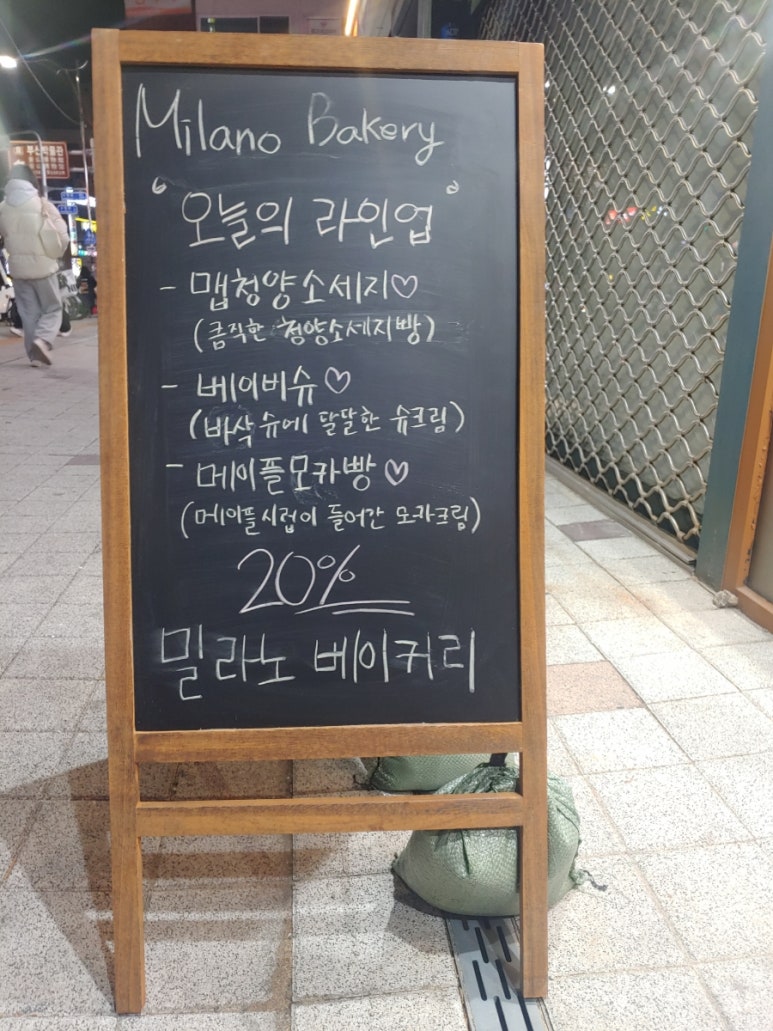 Milano Bakery
"오늘의 라인업"
- 맵청양소세지♡
(큼직한 청양소세지빵)
- 베이비슈♡
(바삭슈에 달달한 슈크림)
- 메이플모카빵♡
(메이플시럽이 들어간 모카크림)
20%
밀라노 베이커리